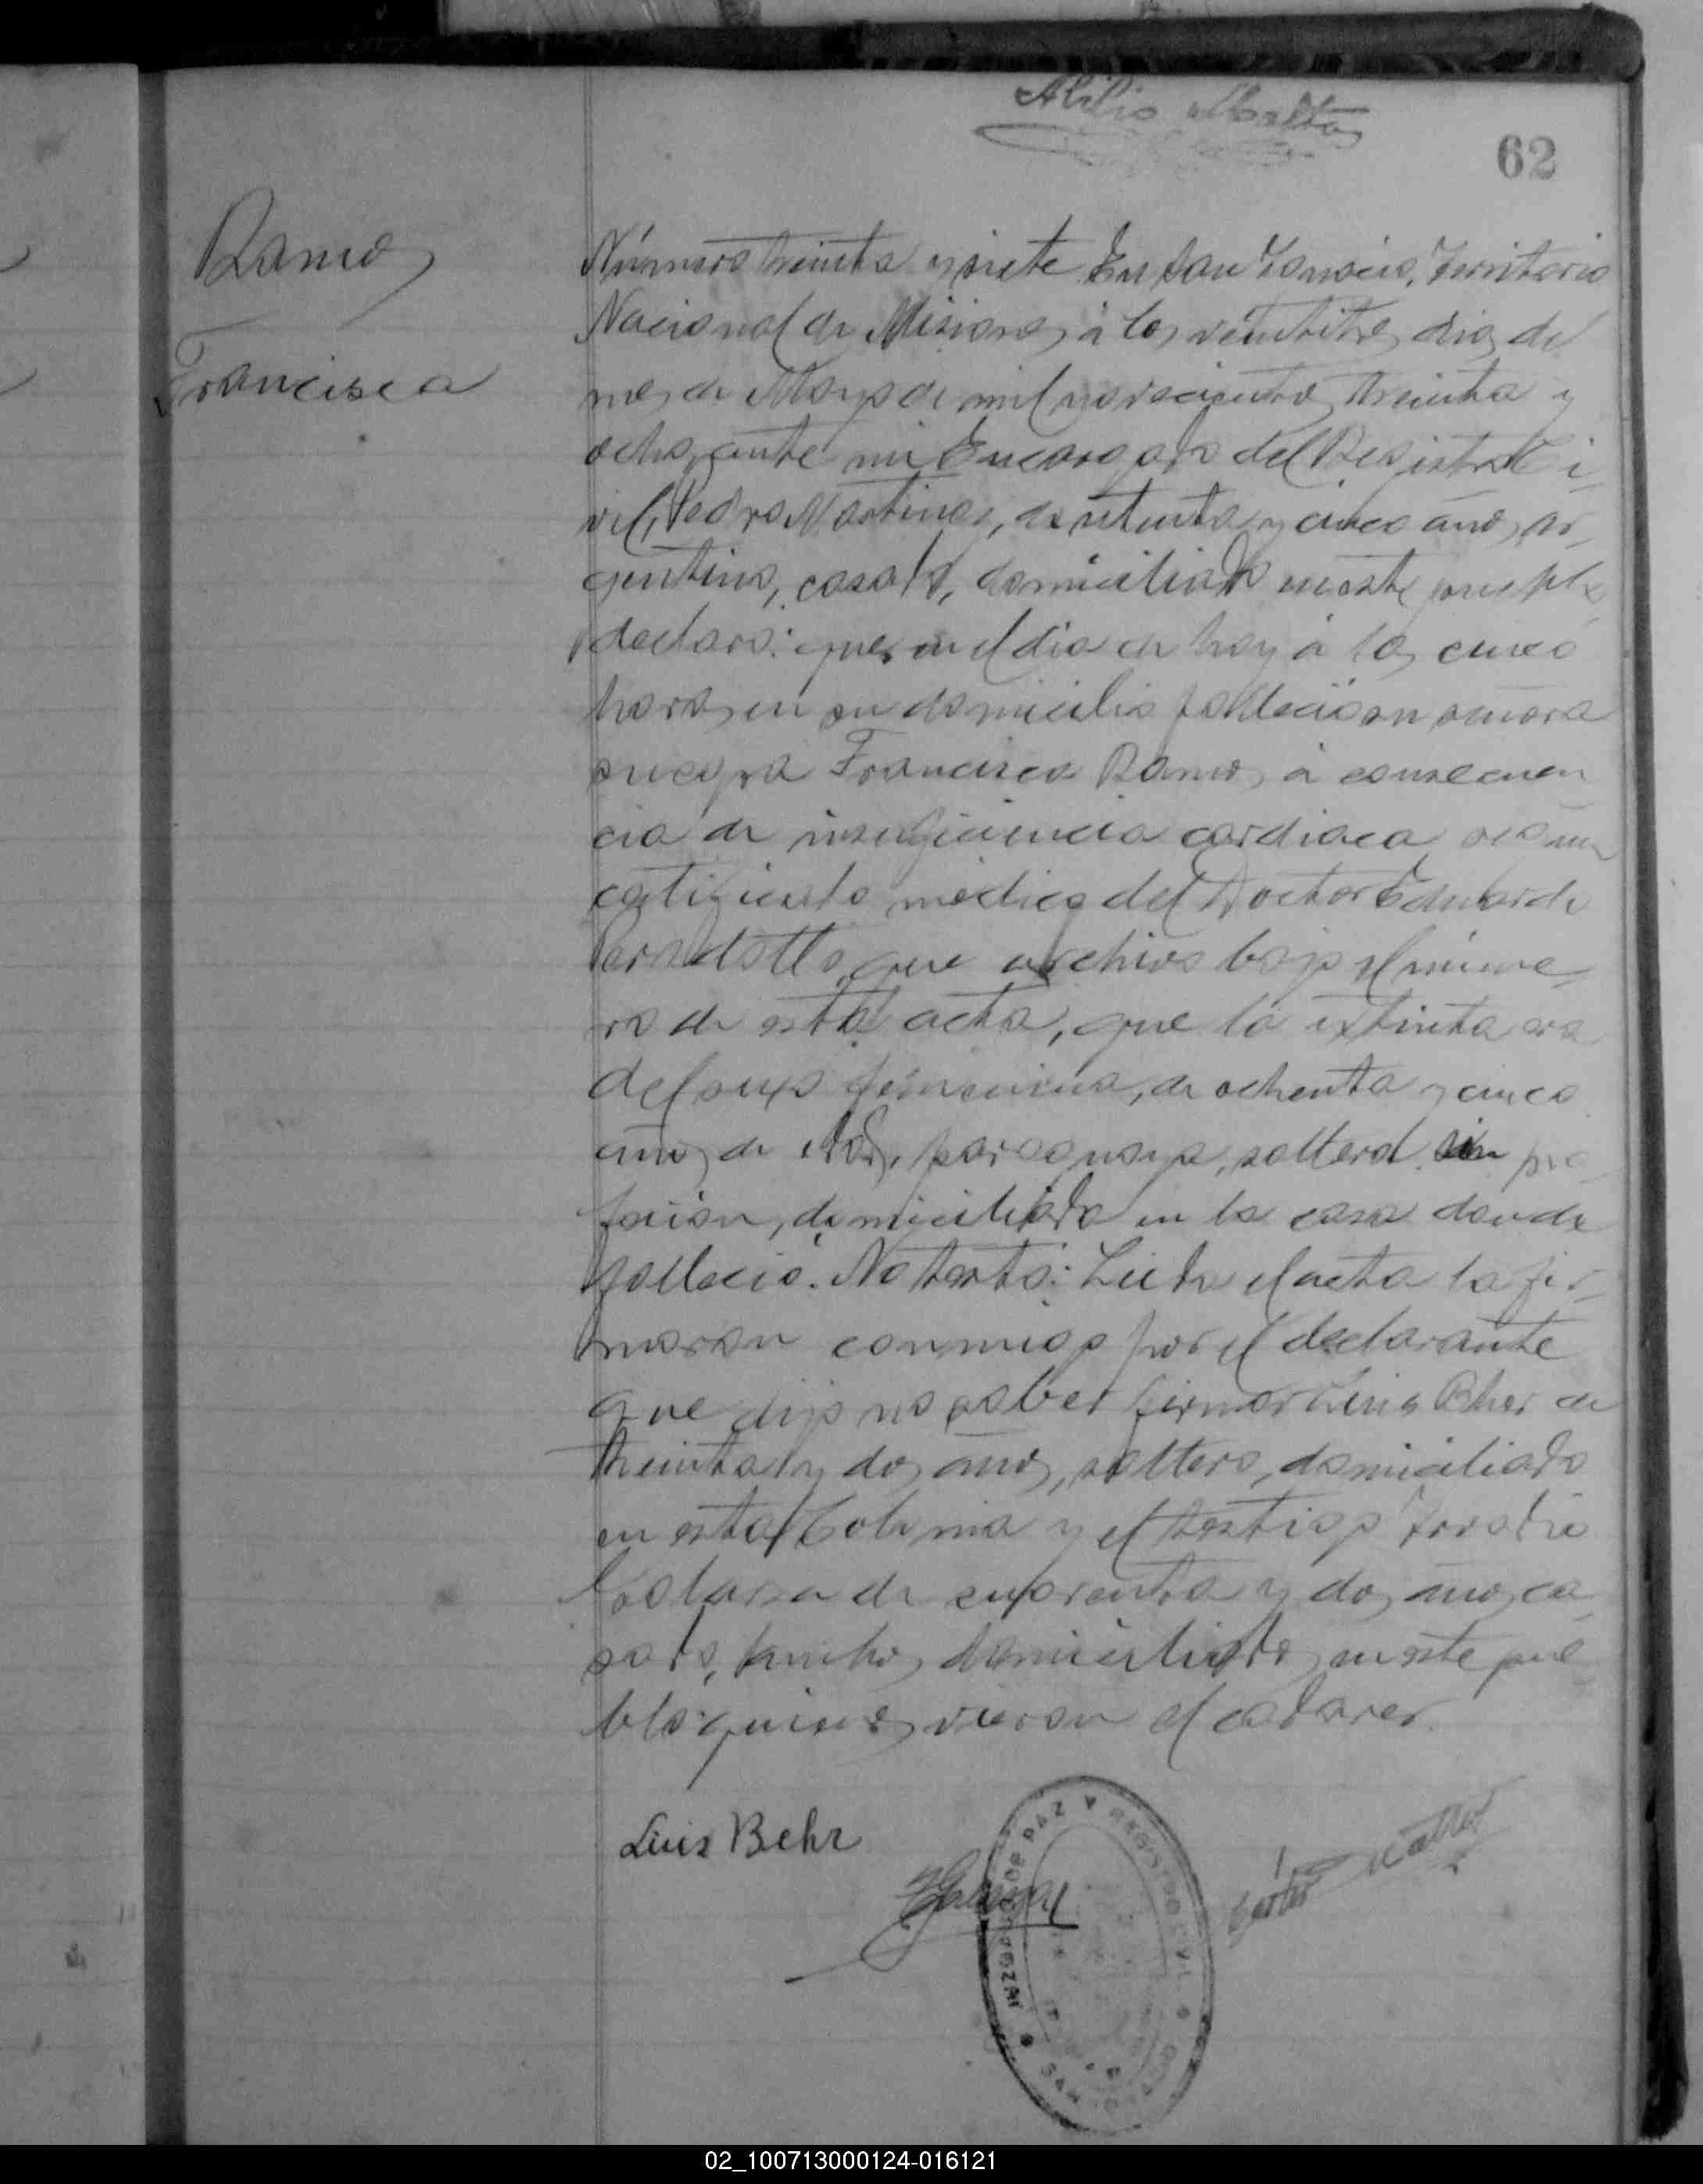 62
Ramos
Francisca
Número treinta y siete En San Ignacio, Territorio
Nacional de Misiones, á los veintitres dias del
mes de Mayo de mil novecientos treinta y
ocho, ante mi Encargado del Registro Ci-
vil, Pedro Martinez, de setenta y cinco años, ar-
gentino, casado, domiciliado en este pueblo
declaró: que, en el dia de hoy á las cinco
horas en su domicilio falleció su señora
suegra Francisca Ramos, á consecuen
cia de insuficiencia cardiaca segun
certificado médico del Doctor Eduardo
que archivo bajo el núme-
ro de esta acta, que la extinta era
del sexo femenino, de ochenta y cinco
años de edad, paraguaya, soltera, sin pro-
fesion, domiciliada en la casa donde
falleció. No testó: Leida el acta la fir-
maron conmigo por el declarante
que dijo no saber firmar Luis Bher de
treinta y dos años, soltero, domiciliado
en esta Colonia y el testigo
de cuarenta y dos años, ca-
sado, ambos domiciliados en este pue-
blo quienes vieron el cadaver.
Luis Behr
JUZGADO DE PAZ Y REGISTRO CIVIL
SAN
02_100713000124-016121